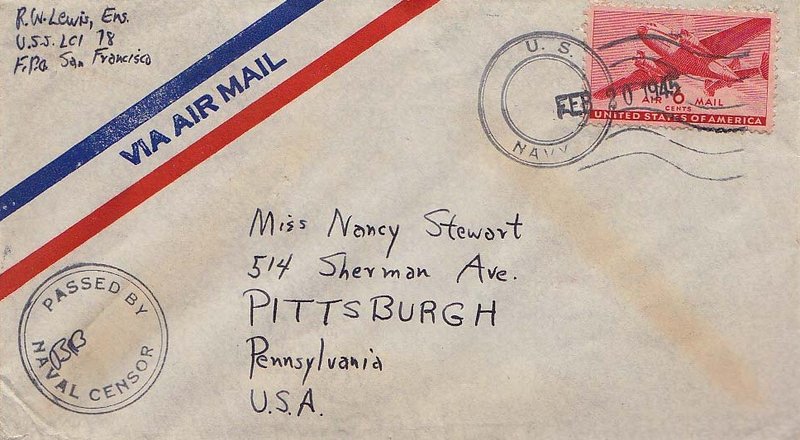 R.W. Lewis, Ens.
U.S.S. LCI 78
F.P.O. San Francisco
VIA AIR MAIL
U. S.
NAVY
FEB 20 1945
AIR 6 MAIL
CENTS
UNITED STATES OF AMERICA
Miss Nancy Stewart
514 Sherman Ave.
PITTSBURGH
Pennsylvania
U.S.A.
PASSED BY
BB
NAVAL CENSOR